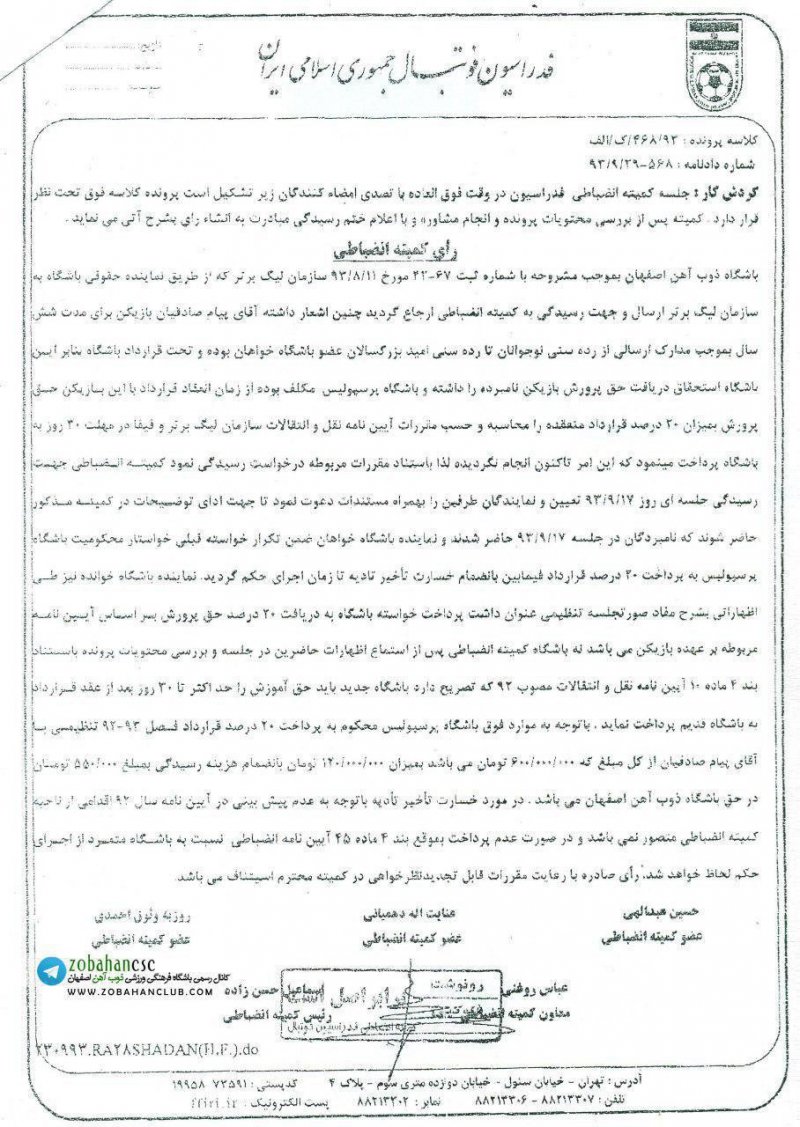 فدراسیون فوتبال جمهوری اسلامی ایران
تاریخ:
کلاسه پرونده : ۴۶۸/۹۳/ک/الف
شماره دادنامه : ۵۶۸-۹۳/۹/۲۹
گردش کار : جلسه کمیته انضباطی فدراسیون در وقت فوق العاده با تصدی امضاء کنندگان زیر تشکیل است پرونده کلاسه فوق تحت نظر
قرار دارد . کمیته پس از بررسی محتویات پرونده و انجام مشاوره و با اعلام ختم رسیدگی مبادرت به انشاء رای بشرح آتی می نماید .
رأی کمیته انضباطی
باشگاه ذوب آهن اصفهان بموجب مشروحه با شماره ثبت ۶۷-۴۲ مورخ ۹۳/۸/۱۱ سازمان لیگ برتر که از طریق نماینده حقوقی باشگاه به
سازمان لیگ برتر ارسال و جهت رسیدگی به کمیته انضباطی ارجاع گردید چنین اشعار داشته آقای پیام صادقیان بازیکن برای مدت شش
سال بموجب مدارک ارسالی از رده سنی نوجوانان تا رده سنی امید بزرگسالان عضو باشگاه خواهان بوده و تحت قرارداد باشگاه بنابر ایین
باشگاه استحقاق دریافت حق پرورش بازیکن نامبرده را داشته و باشگاه پرسپولیس مکلف بوده از زمان انعقاد قرارداد با این بازیکن حق
پرورش بمیزان ۲۰ درصد قرارداد منعقده را محاسبه و حسب مقررات آیین نامه نقل و انتقالات سازمان لیگ برتر و فیفا در مهلت ۳۰ روز به
باشگاه پرداخت مینمود که این امر تاکنون انجام نگردیده لذا باستناد مقررات مربوطه درخواست رسیدگی نمود کمیته انضباطی جهت
رسیدگی جلسه ای روز ۹۳/۹/۱۷ تعیین و نمایندگان طرفین را بهمراه مستندات دعوت نمود تا جهت ادای توضیحات در کمیته مذکور
حاضر شوند که نامبردگان در جلسه ۹۳/۹/۱۷ حاضر شدند و نماینده باشگاه خواهان ضمن تکرار خواسته قبلی خواستار محکومیت باشگاه
پرسپولیس به پرداخت ۲۰ درصد قرارداد فیمابین بانضمام خسارت تأخیر تادیه تا زمان اجرای حکم گردید. نماینده باشگاه خوانده نیز طی
اظهاراتی بشرح مفاد صورتجلسه تنظیمی عنوان داشت پرداخت خواسته باشگاه به دریافت ۲۰ درصد حق پرورش بر اساس آیین نامه
مربوطه بر عهده بازیکن می باشد نه باشگاه کمیته انضباطی پس از استماع اظهارات حاضرین در جلسه و بررسی محتویات پرونده باستناد
بند ۴ ماده ۱۰ آیین نامه نقل و انتقالات مصوب ۹۲ که تصریح دارد باشگاه جدید باید حق آموزش را حد اکثر تا ۳۰ روز بعد از عقد قرارداد
به باشگاه قدیم پرداخت نماید . باتوجه به موارد فوق باشگاه پرسپولیس محکوم به پرداخت ۲۰ درصد قرارداد فصل ۹۳-۹۲ تنظیمی با
آقای پیام صادقیان از کل مبلغ که ۶۰۰/۰۰۰/۰۰۰ تومان می باشد بمیزان ۱۲۰/۰۰۰/۰۰۰ تومان بانضمام هزینه رسیدگی بمبلغ ۵۵۰/۰۰۰ تومان
در حق باشگاه ذوب آهن اصفهان می باشد . در مورد خسارت تأخیر تأدیه باتوجه به عدم پیش بینی در آیین نامه سال ۹۲ اقدامی از ناحیه
کمیته انضباطی متصور نمی باشد و در صورت عدم پرداخت بموقع بند ۴ ماده ۴۵ آیین نامه انضباطی نسبت به باشگاه متمرد از اجرای
حکم لحاظ خواهد شد. رأی صادره با رعایت مقررات قابل تجدیدنظرخواهی در کمیته محترم استیناف می باشد.
حسین عبدالهی عنایت اله دهمیانی روزبه وثوق احمدی
عضو کمیته انضباطی عضو کمیته انضباطی عضو کمیته انضباطی
zobahancsc
کانال رسمی باشگاه فرهنگی ورزشی ذوب آهن اصفهان
WWW.ZOBAHANCLUB.COM
عباس روغنی رونوشت برابر اصل است اسماعیل حسن زاده
معاون کمیته انضباطی رئیس کمیته انضباطی
کمیته انضباطی فدراسیون فوتبال
۲۳۰۹۹۳.RAYASHADAN(H.F.).do
آدرس : تهران - خیابان سئول - خیابان دوازده متری سوم - پلاک ۴ کدپستی : ۷۳۵۹۱-۱۹۹۵۸
تلفن : ۸۸۲۱۳۳۰۷ - ۸۸۲۱۳۳۰۶ نمابر : ۸۸۲۱۳۳۰۲ پست الکترونیک : ffiri.ir